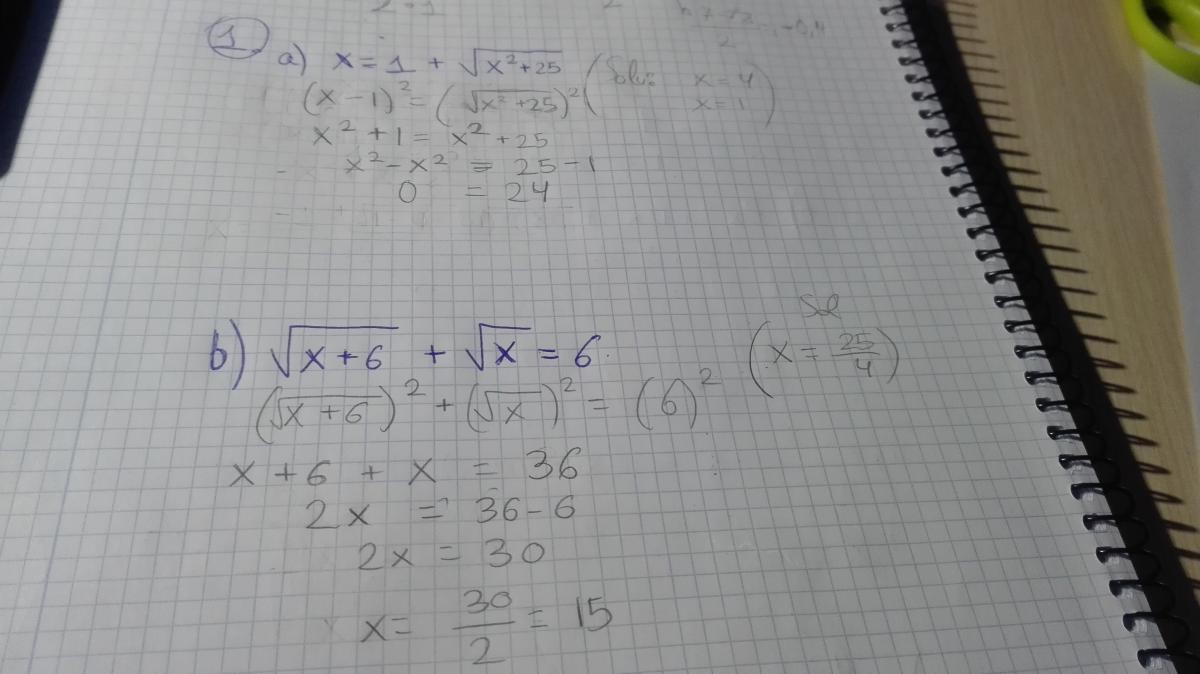 1
a) x = 1 + √(x² + 25) (Solu: x = 4
x = 1)
(x − 1)² = (√(x² + 25))²
x² + 1 = x² + 25
x² − x² = 25 − 1
0 = 24
b) √(x + 6) + √x = 6.
Sol
(x = 25/4)
(√(x + 6))² + (√x)² = (6)²
x + 6 + x = 36
2x = 36 − 6
2x = 30
x = 30/2 = 15